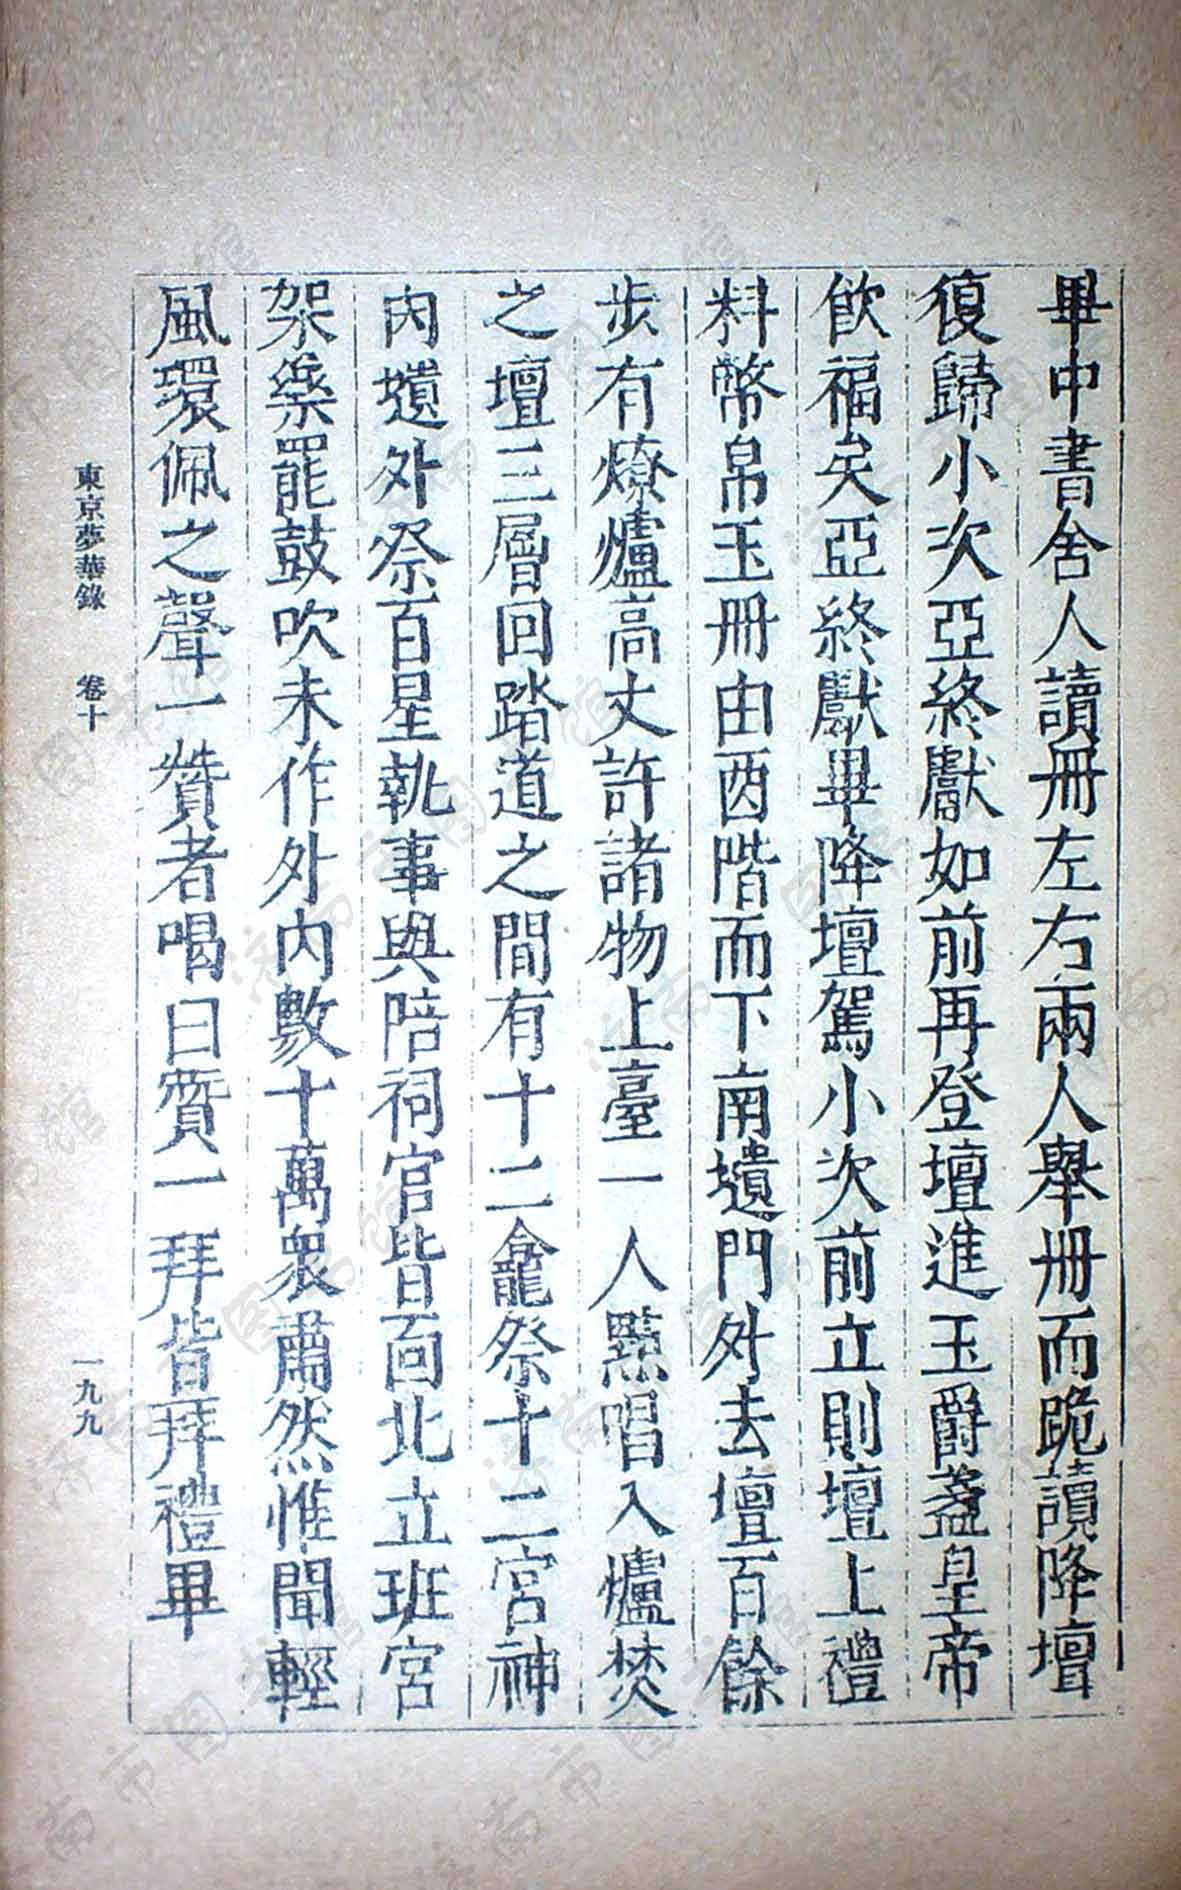 畢中書舍人讀冊左右兩人舉冊而跪讀降壇
復歸小次亞終獻如前再登壇進玉爵盞皇帝
飲福矣亞終獻畢降壇駕小次前立則壇上禮
料幣帛玉冊由酉階而下南壝門外去壇百餘
步有燎爐高丈許諸物上臺一人點唱入爐焚
之壇三層回踏道之間有十二龕祭十二宮神
內壝外祭百星執事與陪祠官皆面北立班宮
架樂罷鼓吹未作外內數十萬衆肅然惟聞輕
風環佩之聲一贊者喝曰賛一拜皆拜禮畢
東京夢華錄 卷十 一九九
济南市图书馆